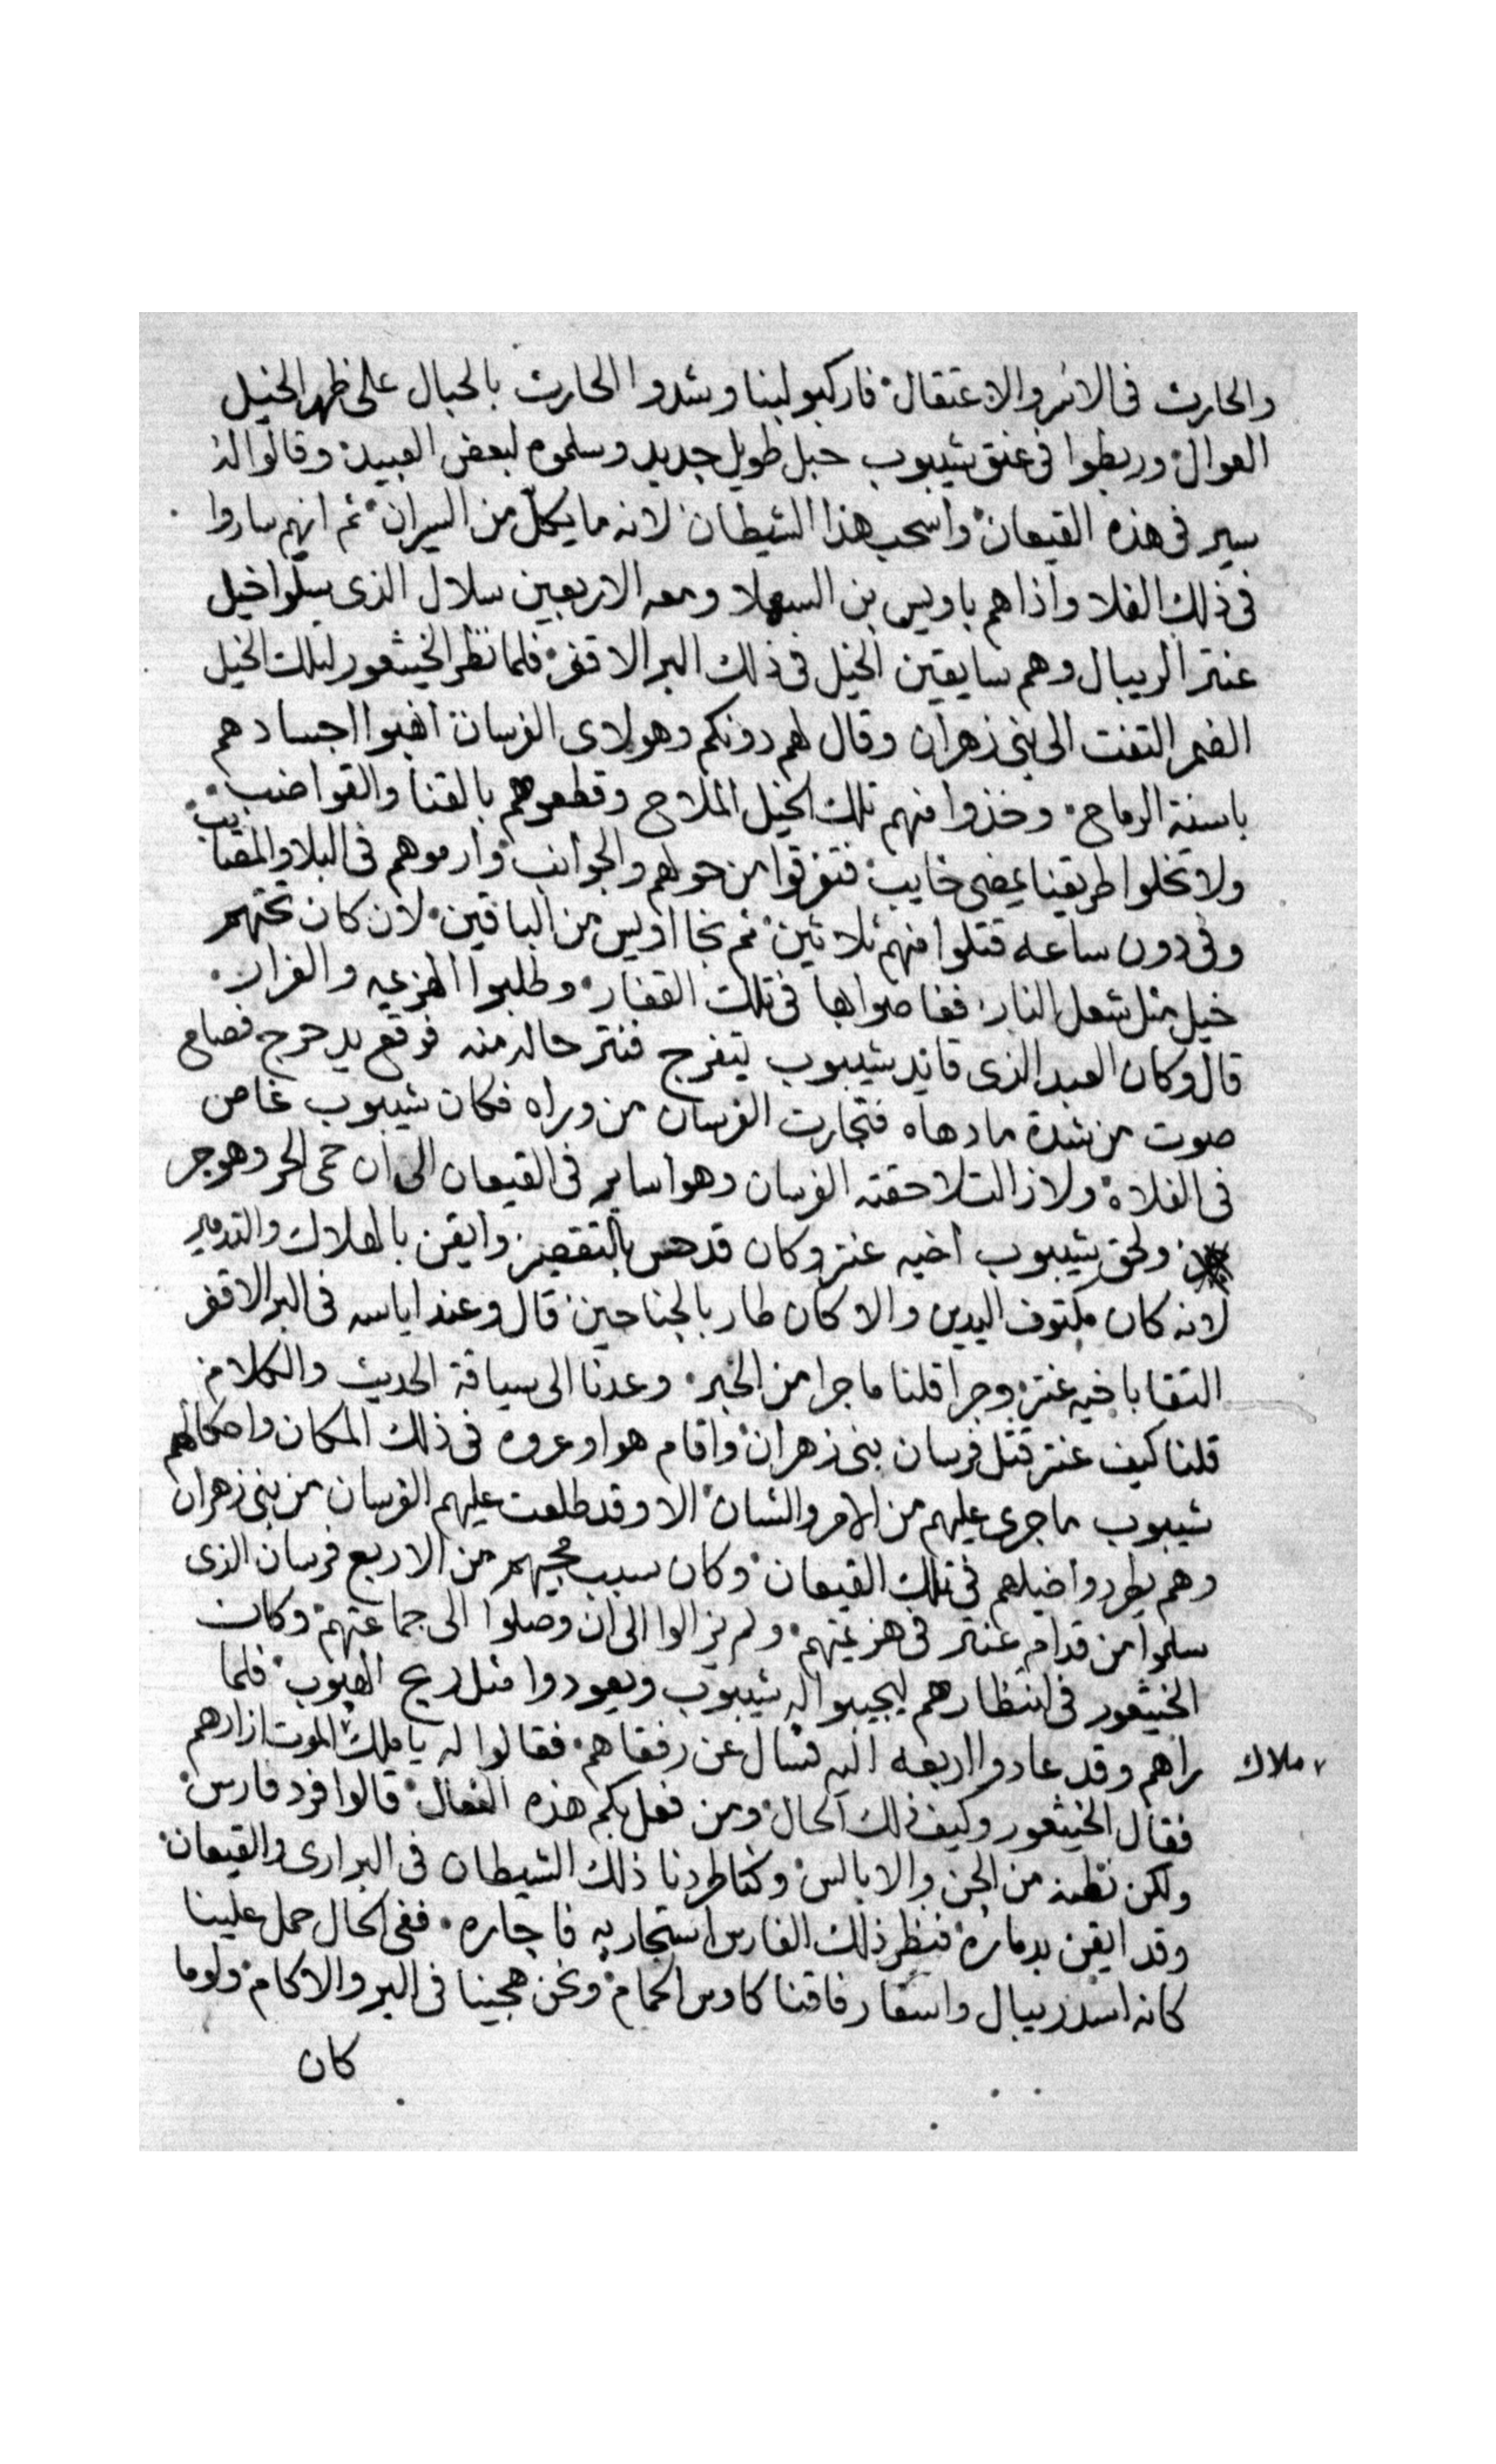 والحارث فى الاسر والاعتقال فاركبو لبنا وشدوا الحارث بالحبال على ظهر الخيل
العوال وربطوا فى عنق شيبوب حبل طويل جديد وسلموه لبعض العبيد وقالوا له
سير فى هذه القيعان واسحب هذا الشيطان لانه ما يكل من السيران ثم انهم ساروا
فى ذلك الفلا واذا هم باويس بن السهلا ومعه الاربعين سلال الذى سلوا خيل
عنتر الريبال وهم سايقين الخيل فى ذلك البر الاقفر فلما نظر الخيثعور لتلك الخيل
الضمر التفت الى بنى زهران وقال لهم دونكم وهولاى الفرسان اهبوا اجسادهم
باسنة الرماح وخذوا منهم تلك الخيل الملاح وقطعوهم بالقنا والقواضب
ولا تخلوا طريقنا يمضى خايب فتفرقوا من حولهم والجوانب وارموهم فى البلا والمصايب
وفى دون ساعه قتلوا منهم ثلاثين ثم نجا اويس من الباقين لان كان تحتهم
خيل مثل شعل النار فغاصوا بها فى تلك القفار وطلبوا الهزيمه والفرار
قال وكان العبد الذى قايد شيبوب يتفرج فنتر حاله منه فوقع يدحرج فصاح
صوت من شدة ما دهاه فتجارت الفرسان من وراه فكان شيبوب غاص
فى الفلاة ولا زالت تلاحقته الفرسان وهوا ساير فى القيعان الى ان حمى الحر وهوجر
ولحق شيبوب اخيه عنتر وكان قد حس بالتقصير وايقن بالهلاك والتدمير
لانه كان مكتوف اليدين والا كان طار بالجناحين قال وعند اياسه فى البر الاقفر
التقا باخيه عنتر وجرا قلنا ما جرا من الخبر وعدنا الى سياقة الحديث والكلام
قلنا كيف عنتر قتل فرسان بنى زهران واقام هوا وعروه فى ذلك المكان واحكالهم
شيبوب ما جرى عليهم من الامر والشان الا وقد طلعت عليهم الفرسان من بنى زهران
وهم يطردوا خيلهم فى تلك القيعان وكان سبب مجيهم من الاربع فرسان الذى
سلموا من قدام عنتر فى هزيمتهم ولم يزالوا الى ان وصلوا الى جماعتهم وكان
الخيثعور فى انتظارهم ليجيبوا له شيبوب ويعودوا مثل ريح الهبوب فلما
راهم وقد عادوا اربعه اليه فسال عن رفقاهم فقالوا له يا ملك الموت ازارهم
ملاك
فقال الخيثعور وكيف ذلك الحال ومن فعل بكم هذه الفعال قالوا فرد فارس
ولكن نظنه من الجن والابالس وكنا طردنا ذلك الشيطان فى البرارى والقيعان
وقد ايقن بدماره فنظر ذلك الفارس استجار به فاجاره ففى الحال حمل علينا
كانه اسد ريبال واسقا رفاقنا كاوس الحمام ونحن هجينا فى البر والاكام ولوما
كان